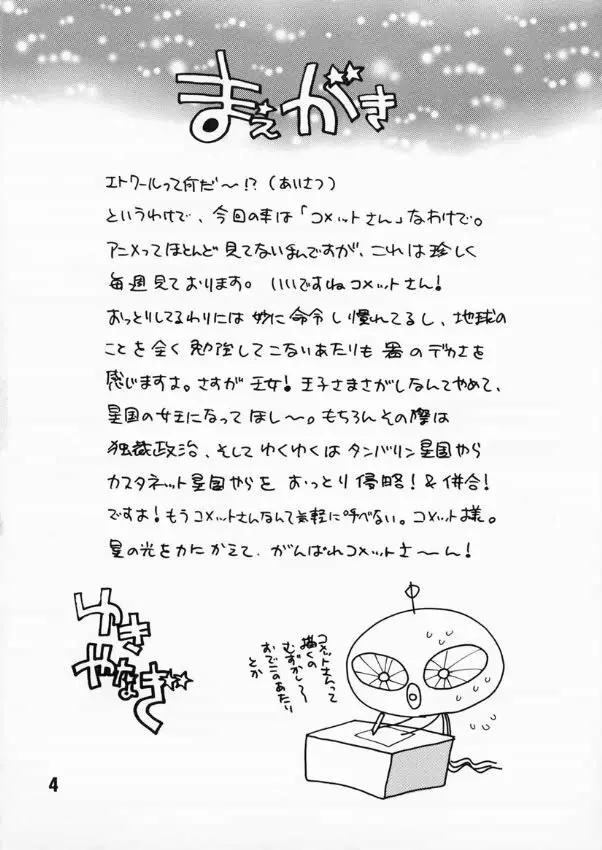 まえがき
エトワールって何だ〜!?(あいさつ)
というわけで、今回の本は「コメットさん」なわけで。
アニメってほとんど見てないんですが、これは珍しく
毎週見ております。いいですねコメットさん!
おっとりしてるわりには妙に命令し慣れてるし、地球の
ことを全く勉強してこないあたりも器のデカさを
感じますよ。さすが王女!王子さまさがしなんてやめて、
星国の女王になってほし〜。もちろんその際は
独裁政治、そしてゆくゆくはタンバリン星国やら
カスタネット星国やらをおっとり侵略!&併合!
ですよ!もうコメットさんなんて気軽に呼べない。コメット様。
星の光を力にかえて、がんばれコメットさ〜ん!
ゆき
やなぎ
コメットさんって
描くの
むずかし〜
おでこのあたり
とか
4